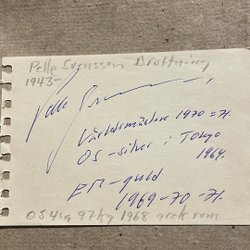 Pelle Svensson Brottning
1943-
Pelle S
Världsmästare 1970 + 71
OS-silver i Tokyo
1964.
EM-guld
1969-70-71.
OS 4:a 97 kg 1968 grek rom